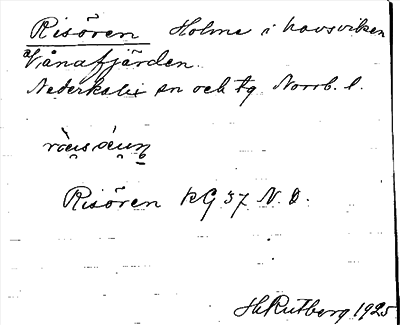 Risören Holme i havsviken
Vånafjärden.
Nederkalix sn och tg Norrb. l.
Risören KG 37 N.O.
H Rutberg 1925